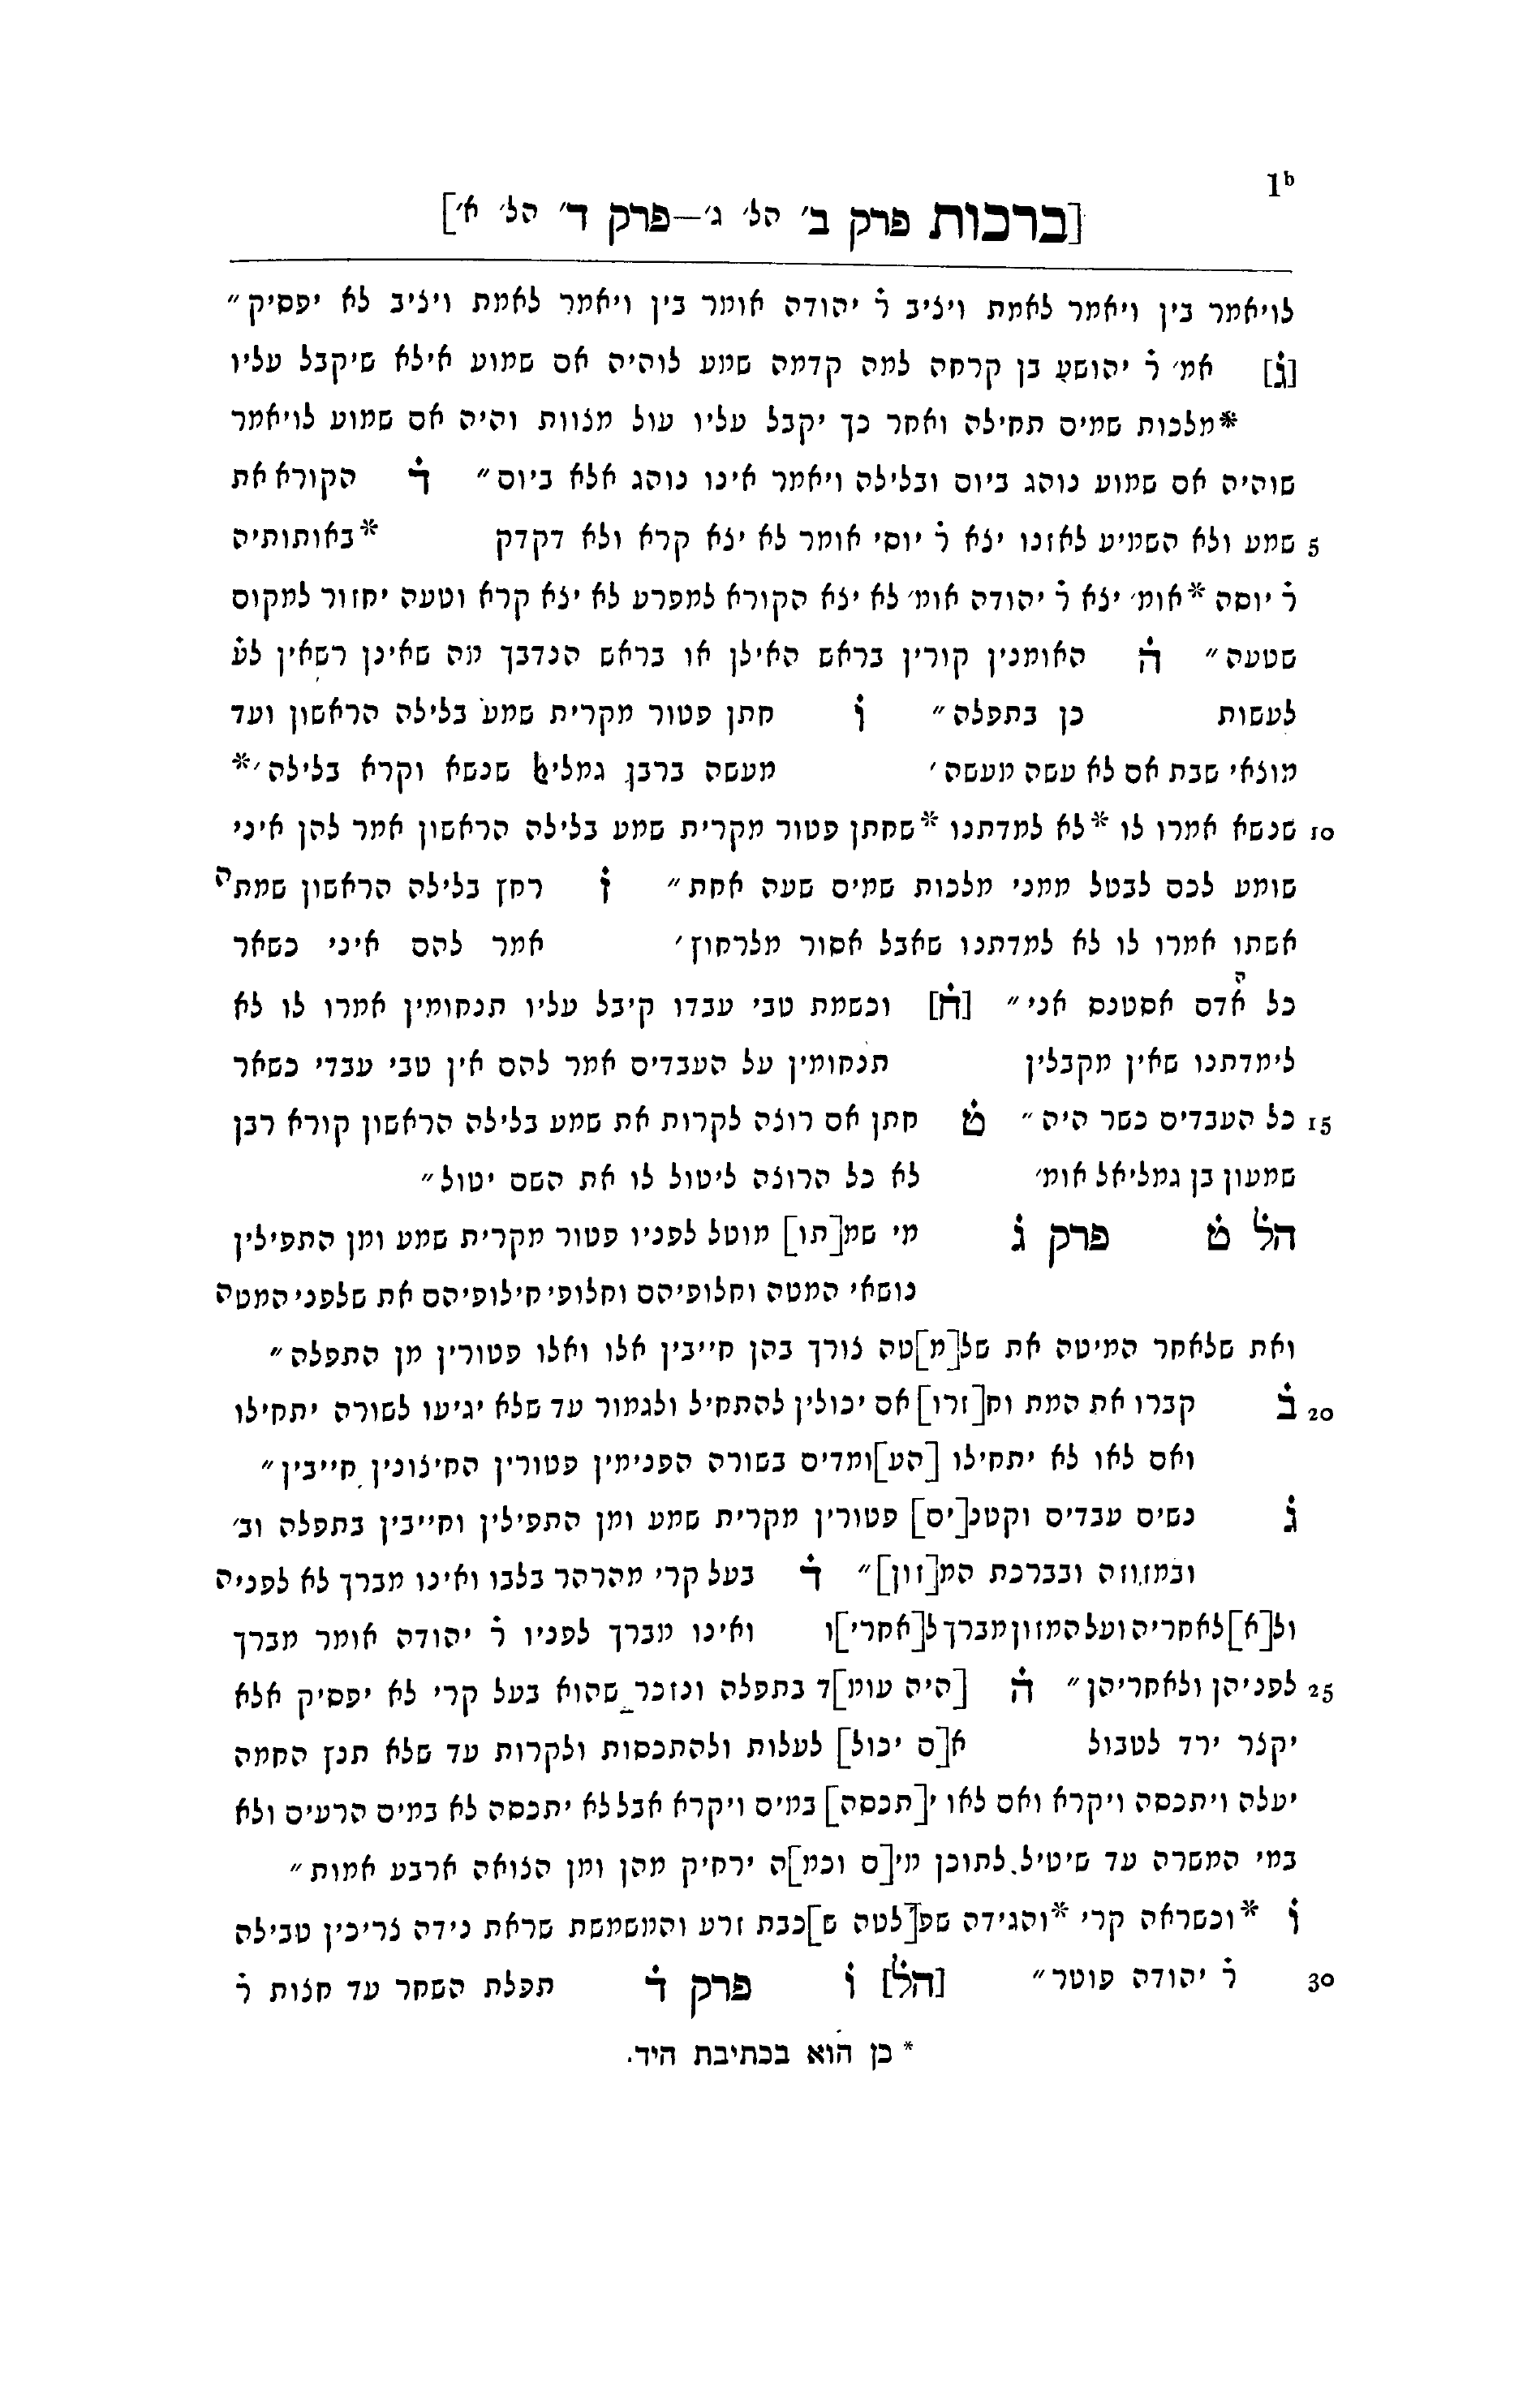 1b
[ברכות פרק ב׳ הל׳ ג׳—פרק ד׳ הל׳ א׳]
לויאמר בין ויאמר לאמת ויציב ר̇ יהודה אומר בין ויאמר לאמת ויציב לא יפסיק״
[ג̇] אמ׳ ר̇ יהושע בן קרחה למה קדמה שמע לוהיה אם שמוע אילא שיקבל עליו
*מלכות שמים תחילה ואחר כך יקבל עליו עול מצוות והיה אם שמוע לויאמר
שוהיה אם שמוע נוהג ביום ובלילה ויאמר אינו נוהג אלא ביום״ ד̇ הקורא את
5 שמע ולא השמיע לאזנו יצא ר̇ יוסי אומר לא יצא קרא ולא דקדק *באותותיה
ר̇ יוסה *אומ׳ יצא ר̇ יהודה אומ׳ לא יצא הקורא למפרע לא יצא קרא וטעה יחזור למקום
שטעה״ ה̇ האומנין קורין בראש האילן או בראש הנדבך מה שאינן רשאין לע̇
לעשות כן בתפלה״ ו̇ חתן פטור מקרית שמע בלילה הראשון ועד
מוצאי שבת אם לא עשה מעשה׳ מעשה ברבן גמליל שנשא וקרא בלילה׳*
10 שנשא אמרו לו *לא למדתנו *שחתן פטור מקרית שמע בלילה הראשון אמר להן איני
שומע לכם לבטל ממני מלכות שמים שעה אחת״ ז̇ רחץ בלילה הראשון שמתה
אשתו אמרו לו לא למדתנו שאבל אסור מלרחוץ׳ אמר להם איני כשאר
כל האדם אסטנס אני״ [ח̇] וכשמת טבי עבדו קיבל עליו תנחומין אמרו לו לא
לימדתנו שאין מקבלין תנחומין על העבדים אמר להם אין טבי עבדי כשאר
15 כל העבדים כשר היה״ ט̇ חתן אם רוצה לקרות את שמע בלילה הראשון קורא רבן
שמעון בן גמליאל אומ׳ לא כל הרוצה ליטול לו את השם יטול״
הל̇ ט̇ פרק ג̇ מי שמ[תו] מוטל לפניו פטור מקרית שמע ומן התפילין
נושאי המטה וחלופיהם וחלופי חילופיהם את שלפני המטה
ואת שלאחר המיטה את של[מ]טה צורך בהן חייבין אלו ואלו פטורין מן התפלה״
20 ב̇ קברו את המת וח[זרו] אם יכולין להתחיל ולגמור עד שלא יגיעו לשורה יתחילו
ואם לאו לא יתחילו [הע]ומדים בשורה הפנימין פטורין החיצונין חייבין״
ג̇ נשים עבדים וקטנ[ים] פטורין מקרית שמע ומן התפילין וחייבין בתפלה וב׳
ובמזוזה ובברכת המ[זון]״ ד̇ בעל קרי מהרהר בלבו ואינו מברך לא לפניה
ול[א] לאחריה ועל המזון מברך ל[אחרי]ו ואינו מברך לפניו ר̇ יהודה אומר מברך
25 לפניהן ולאחריהן״ ה̇ [היה עומ]ד בתפלה ונזכר שהוא בעל קרי לא יפסיק אלא
יקצר ירד לטבול א[ם יכול] לעלות ולהתכסות ולקרות עד שלא תנץ החמה
יעלה ויתכסה ויקרא ואם לאו י[תכסה] במים ויקרא אבל לא יתכסה לא במים הרעים ולא
במי המשרה עד שיטיל לתוכן מי[ם וכמ]ה ירחיק מהן ומן הצואה ארבע אמות״
ו̇ *וכשראה קרי *והגידה שפ[לטה ש]כבת זרע והמשמשת שראת נידה צריכין טבילה
30 ר̇ יהודה פוטר״ [הל̇] ו̇ פרק ד̇ תפלת השחר עד חצות ר̇
* כן הוא בכתיבת היד.